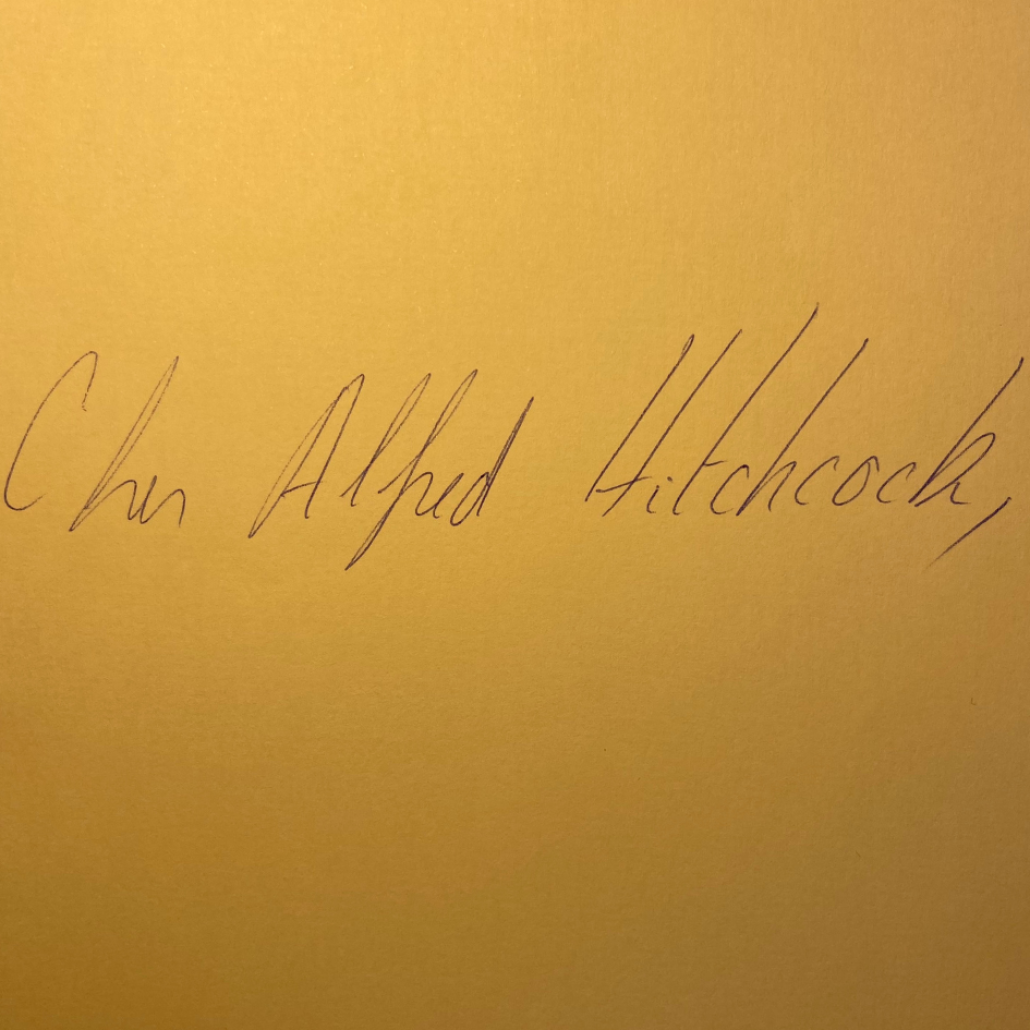 Cher Alfred Hitchcock,